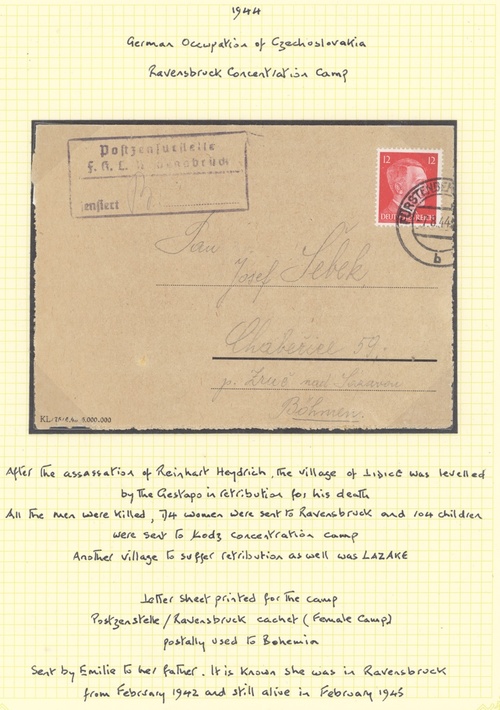 1944
German Occupation of Czechoslovakia
Ravensbruck Concentration Camp
Postzensurstelle
F. K. L. Ravensbrück
zensiert
12 12
DEUTSCHES REICH
FÜRSTENBERG
.6.44
b
Pan
Josef Šebek
Chabeřice 59.
p. Zruč nad Sázavou
Böhmen.
KL/ 6.000.000
After the assassation of Reinhart Heydrich, the village of LIDICE was levelled
by the Gestapo in retribution for his death
All the men were killed, 74 women were sent to Ravensbruck and 104 children
were sent to Lodz concentration camp
Another village to suffer retribution as well was LAZAKE
Letter sheet printed for the camp
Postzenstelle / Ravensbruck cachet (Female Camp)
postally used to Bohemia
Sent by Emilie to her father. It is known she was in Ravensbruck
from February 1942 and still alive in February 1945